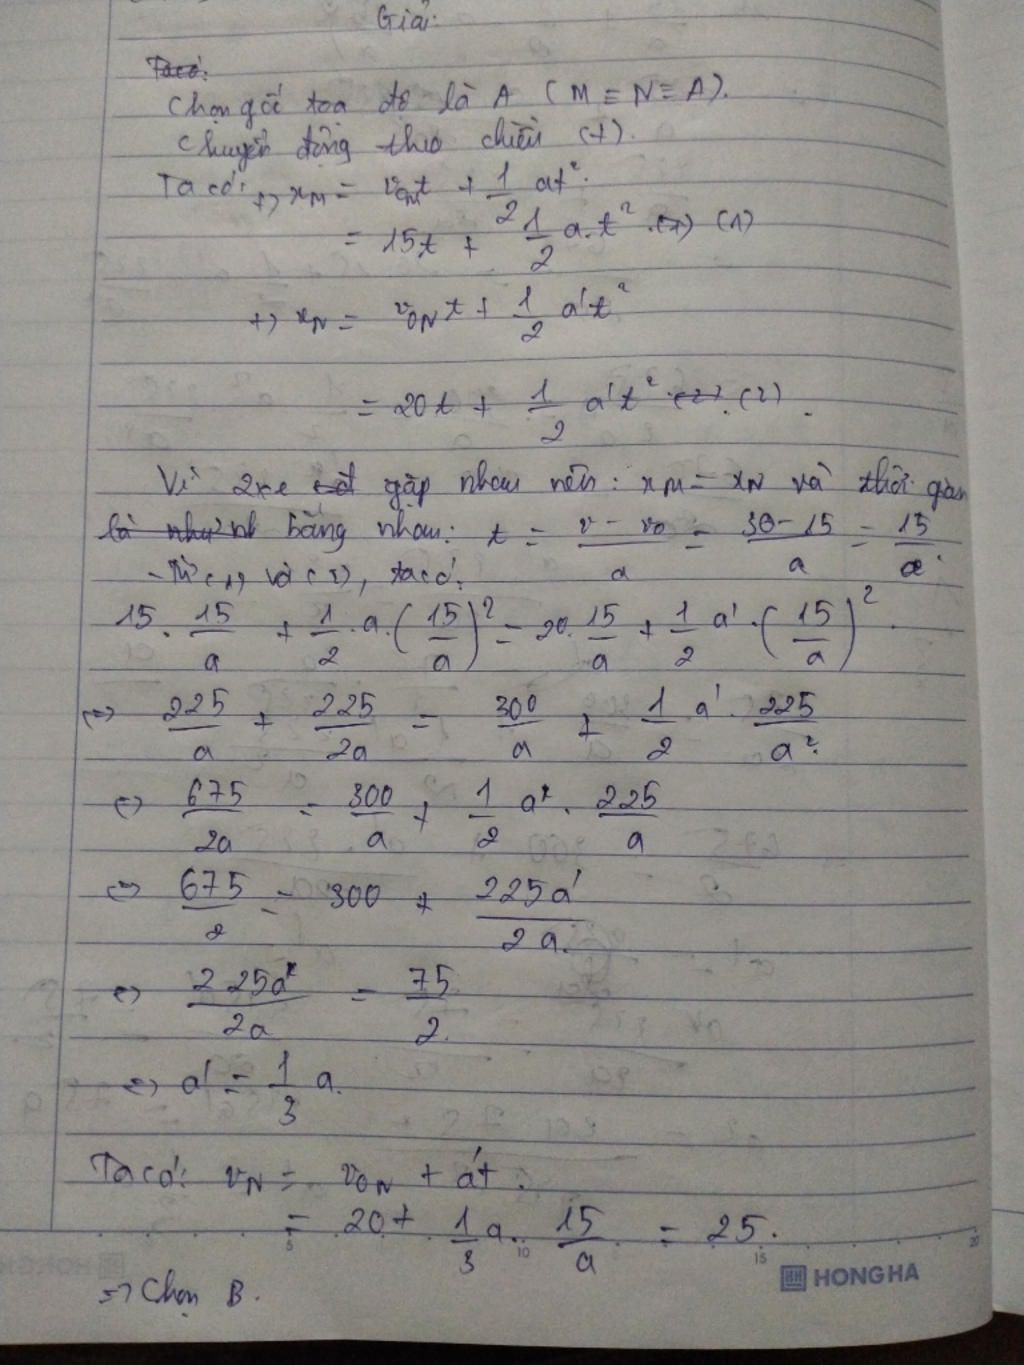 Giải:
Ta có:
Chọn gốc tọa độ là A (M ≡ N ≡ A).
Chuyển động theo chiều (+).
Ta có: +) xM = v0Mt + 1/2 at².
= 15t + 1/2 a.t² (1)
+) xN = v0Nt + 1/2 a't²
= 20t + 1/2 a't² (2).
Vì 2 xe gặp nhau nên: xM = xN và thời gian
là như nh bằng nhau: t = (v - v0)/a = (30 - 15)/a = 15/a.
- Từ (1) và (2), ta có:
15 . 15/a + 1/2 . a . (15/a)² = 20 . 15/a + 1/2 a' . (15/a)².
⇔ 225/a + 225/2a = 300/a + 1/2 a' . 225/a².
⇔ 675/2a = 300/a + 1/2 a' . 225/a
⇔ 675/2 = 300 + 225a'/2a.
⇔ 225a'/2a = 75/2.
⇔ a' = 1/3 a.
Ta có: vN = v0N + a't.
= 20 + 1/3 a . 15/a = 25.
5 10 15 20
HONG HA
⇒ Chọn B.